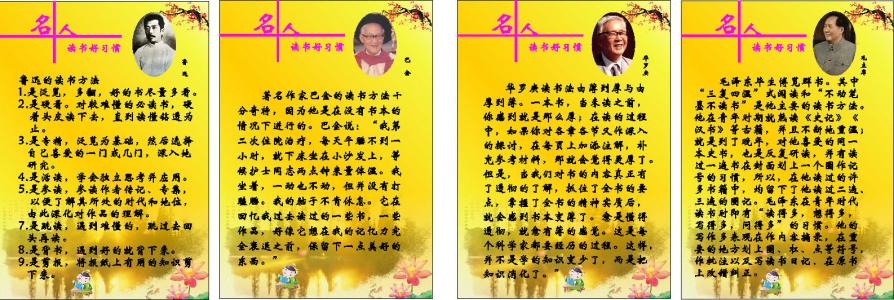 名人
读书好习惯
鲁迅
鲁迅的读书方法
1.是泛览,多翻,好的书尽量多看。
2.是硬看。对较难懂的必读书,硬
着头皮读下去,直到读懂钻透为
止。
3.是专精,泛览为基础,然后选择
自己喜爱的一门或几门,深入地
研究。
4.是活读,学会独立思考并应用。
5.是参读,参读作者传记、专集,
以便了解其所处的时代和地位,
由此深化对作品的理解。
7.是跳读,遇到难懂的,跳过去回
头再读。
8.是背书,遇到好的就背下来。
9.是剪报,将报纸上有用的知识剪
下来。
名人
读书好习惯
巴金
著名作家巴金的读书方法十
分奇特,因为他是在没有书本的
情况下进行的。巴金说:“我第
二次住院治疗,每天午睡不到一
小时,就下床坐在小沙发上,等
候护士同志两点钟来量体温。我
坐着,一动也不动,但并没有打
瞌睡。我的脑子不肯休息。它在
回忆我过去读过的一些书,一些
作品,好像它想在我的记忆力完
全衰退之前,保留下一点美好的
东西。”
名人
读书好习惯
华罗庚
华罗庚读书法由薄到厚与由
厚到薄。一本书,当未读之前,
你感到就是那么厚;在读的过程
中,如果你对各章各节又作深入
的探讨,在每页上加添注解,补
充参考材料,那就会觉得更厚了。
但是,当我们对书的内容真正有
了透彻的了解,抓住了全书的要
点,掌握了全书的精神实质后,
就会感到书本变薄了。愈是懂得
透彻,就愈有薄的感觉。这是每
个科学家都要经历的过程。这样,
并不是学的知识变少了,而是把
知识消化了。”
名人
读书好习惯
毛主席
毛泽东毕生博览群书。其中
“三复四温”式阅读和“不动笔
墨不读书”是他主要的读书方法。
他在青年对期就熟读《史记》《
汉书》等古籍,并且不断地重温;
就是到了晚年,对他喜爱的同一
本史书,也是反复研读,并有读
过一遍书在封面划上一个圈作记
号的习惯,所以,在他读过的许
多书籍中,均留下了他读过二遍、
三遍的圈记。毛泽东在青年时代
读书时即有“读得多,想得多,
写得多,问得多”的习惯。他的
写作多表现在作内容摘录,在重
要的地方划上圈、杠、点等符号,
作批注以及写读书日记、在原书
上改错纠正。